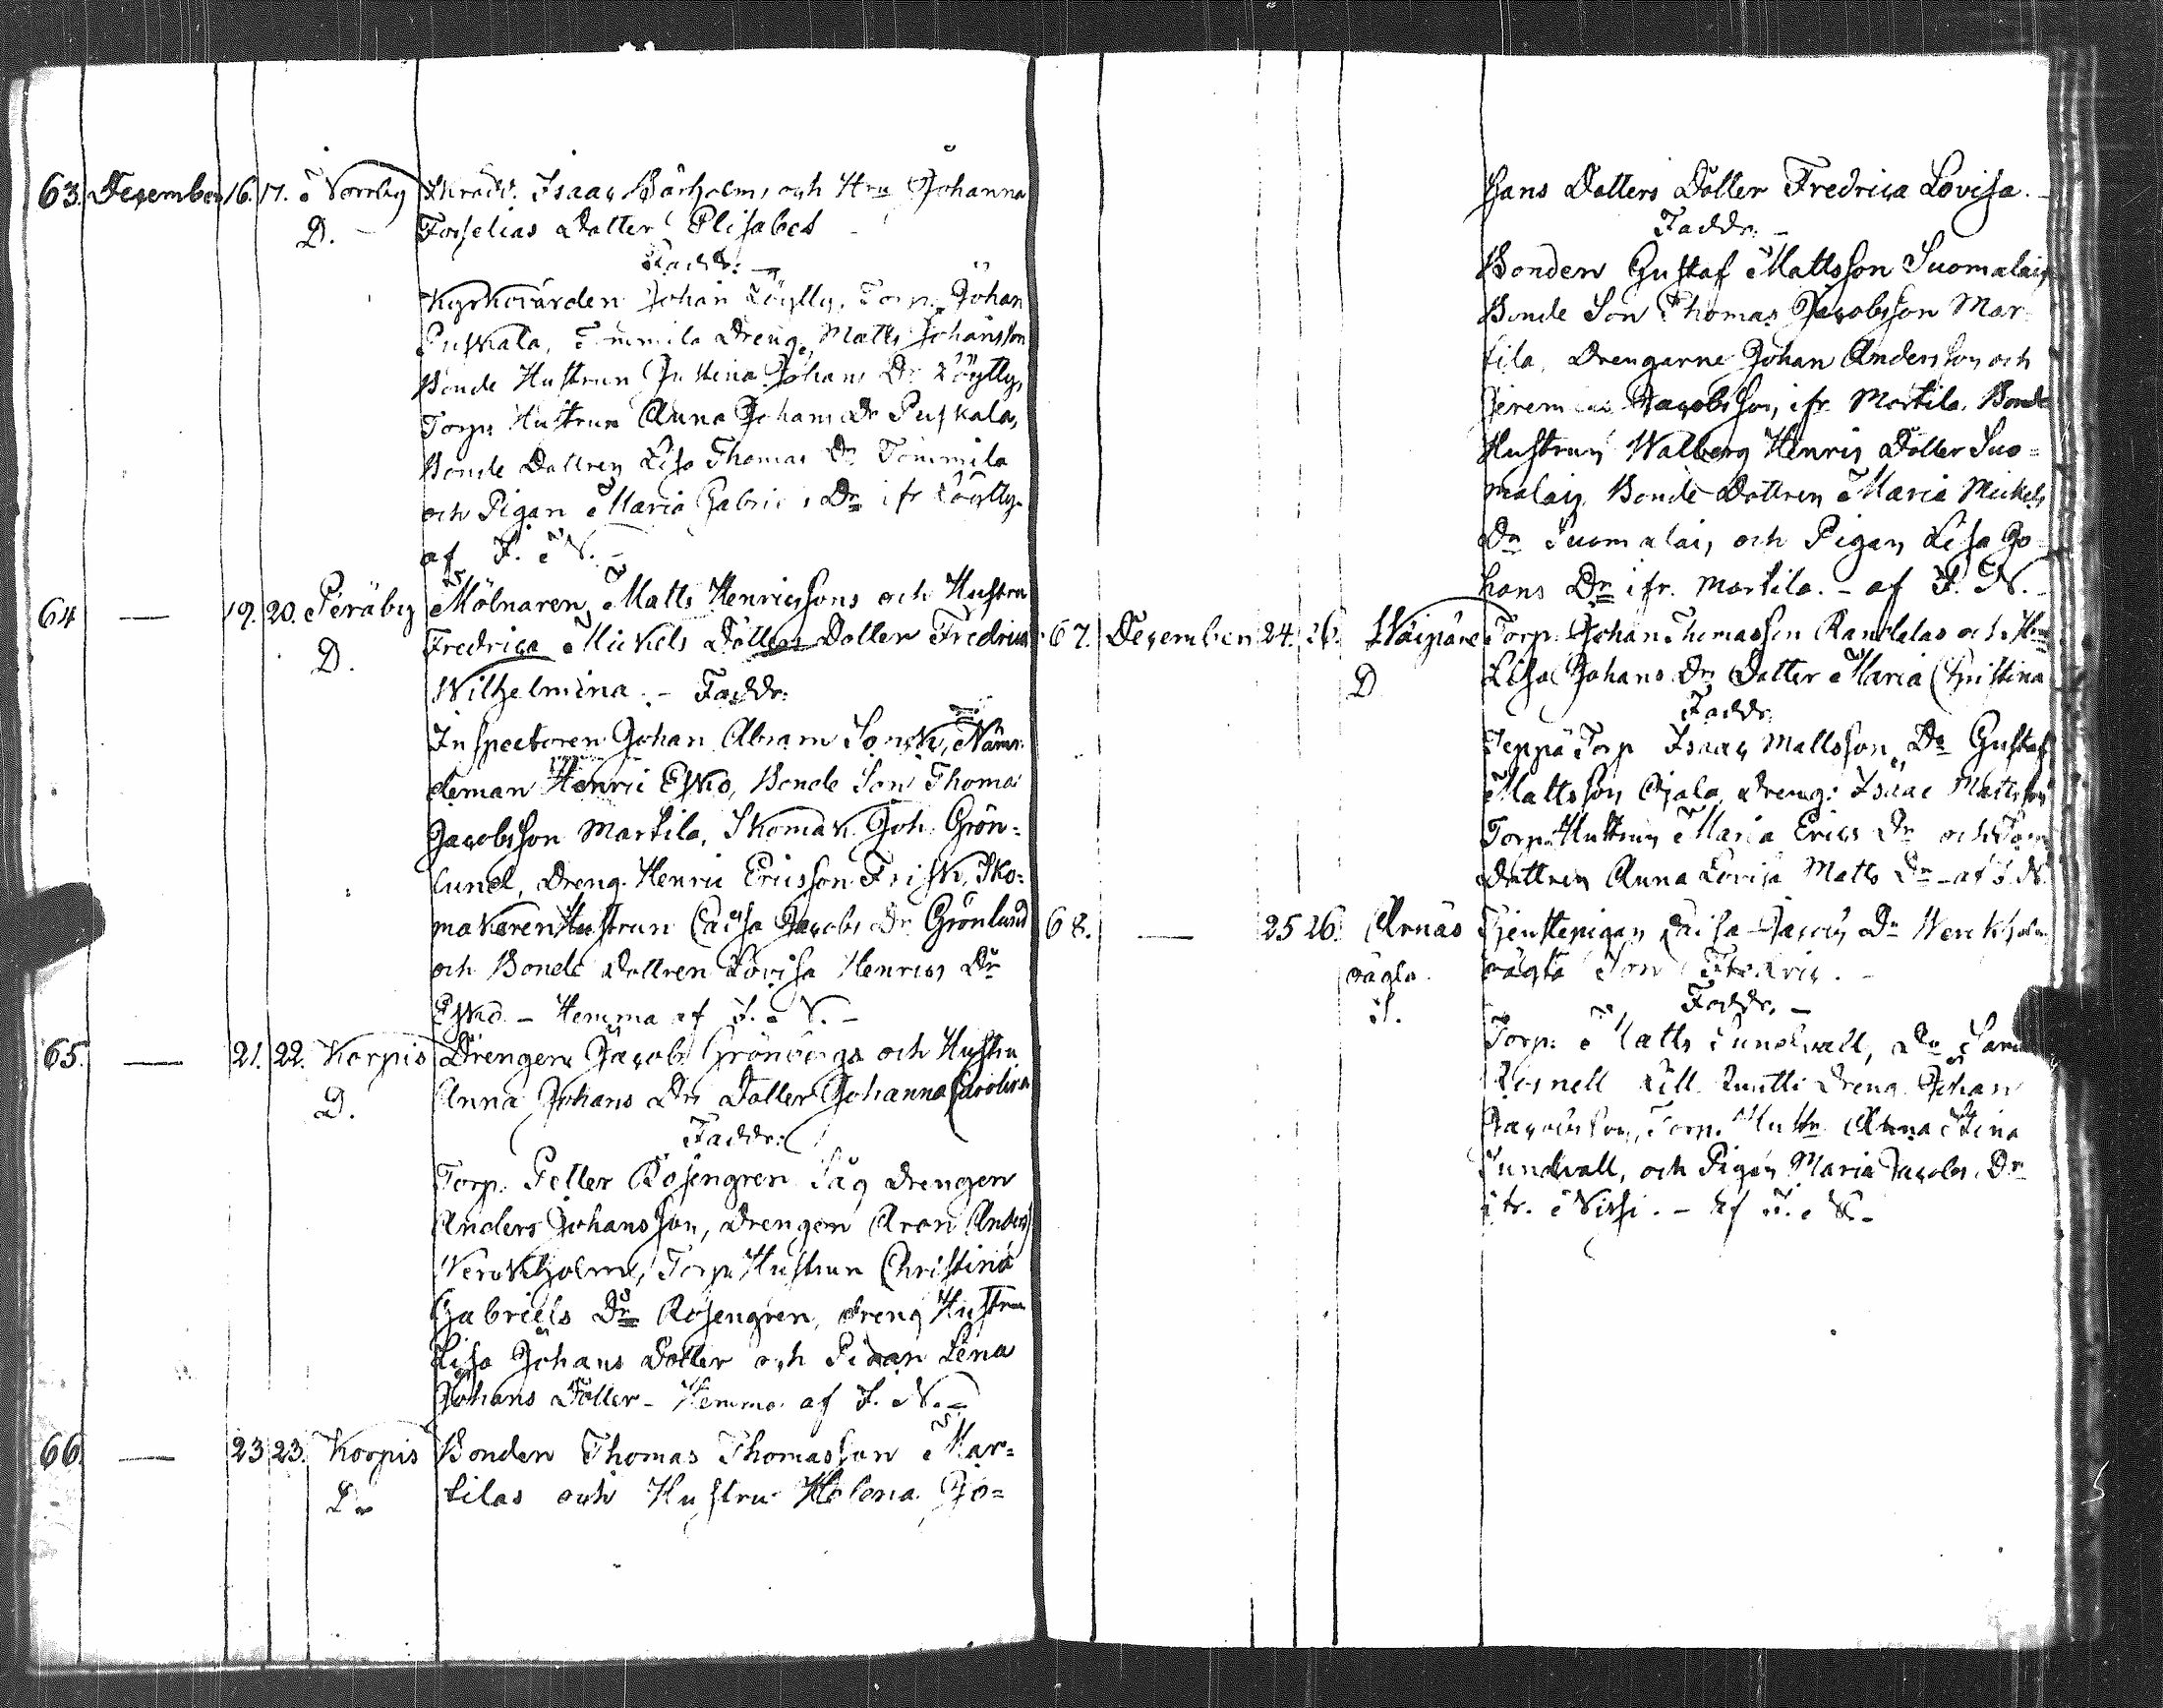 63. December 16. 17. Norrby Skrädd. Isaac Barholms och Hru Johanna
D. Forselias Dotter Elisabet
Faddr:
Kyrkovärden Johan Löylly, Torp. Johan
Puskala, Tommila Dreng. Matts Johansson
Bonde Hustrun Justina Johans Dr Löylly,
Torp: Hustrun Anna Johans Dr Puskala,
Bonde Dottren Lisa Thomas Dr Tommila
och Pigan Maria Gabriels Dr ifr Löylly.
af F. N.
64 — 19. 20. Peräby Mölnaren Matts Henricssons och Hustru
D. Fredrica Mickels Dotters Dotter Fredrica
Wilhelmina. - Faddr:
Inspectoren Johan Abram Sonck, Nämn-
deman Henric Esko, Bonde Son Thomas
Jacobsson Martila, Skomak. Joh. Grön=
lund, Dreng. Henric Ericsson Frisk, Sko=
makaren Hustrun Caisa Jacobs Dr Grönlund
och Bonde Dottren Lovisa Henrics Dr
Esko - Hemma af F. N. -
65. — 21. 22. Korpis Drengen Jacob Grönbergs och Hustru
D. Anna Johans Drs Dotter Johanna Carolina
Faddr:
Torp: Petter Rosengren Såg drengen
Anders Johansson, drengen Aron Anders
Werckholm, Torp: Hustrun Christina
Gabriels Dr Rosengren, dreng Hustru
Lisa Johans Dotter och Pigan Lena
Johans Dotter - Hemma af F. N. -
66. — 23 23. Korpis Bonden Thomas Thomasson Mar=
D. tilas och Hustru Helena Jo=
hans Dotters Dotter Fredrica Lovisa. -
Faddr: -
Bonden Gustaf Mattsson Suomalais,
Bonde Son Thomas Jacobsson Mar
tila, Drengarne Johan Andersson och
Jeremias Jacobsson, ifr. Martila, Bonde
Hustrun Walborg Henrics Dotter Suo=
malais, Bonde Dottren Maria Mickels
Dr Suomalais, och Pigan Lisa Jo
hans Dr ifr. Martila. - af F. N. -
67. December 24. 26. Torp: Johan Thomasson Randelas och Hru
D Lisa Johans Drs Dotter Maria Christina
Faddr.
Seppä Torp Isaac Mattsson, Do Gustaf
Mattsson Ojala, dreng: Isaac Mattsson
Torp. Hustrun Maria Erics Dr och Torp
Dottren Anna Lovisa Matts Dr - af F. N.
68. — 25 26. Arnäs Tjenstepigan Caisa Dr Werckholm
oägta oägta Son Fredric. -
S. Faddr. -
Torp: Matts Sundvall, Do
Lill Dreng. Johan
Jacobsson, Torp. Hustr. Anna Stina
Sundvall, och Pigan Maria Jacobs Dr
ifr. Nissi. - af F. N. -